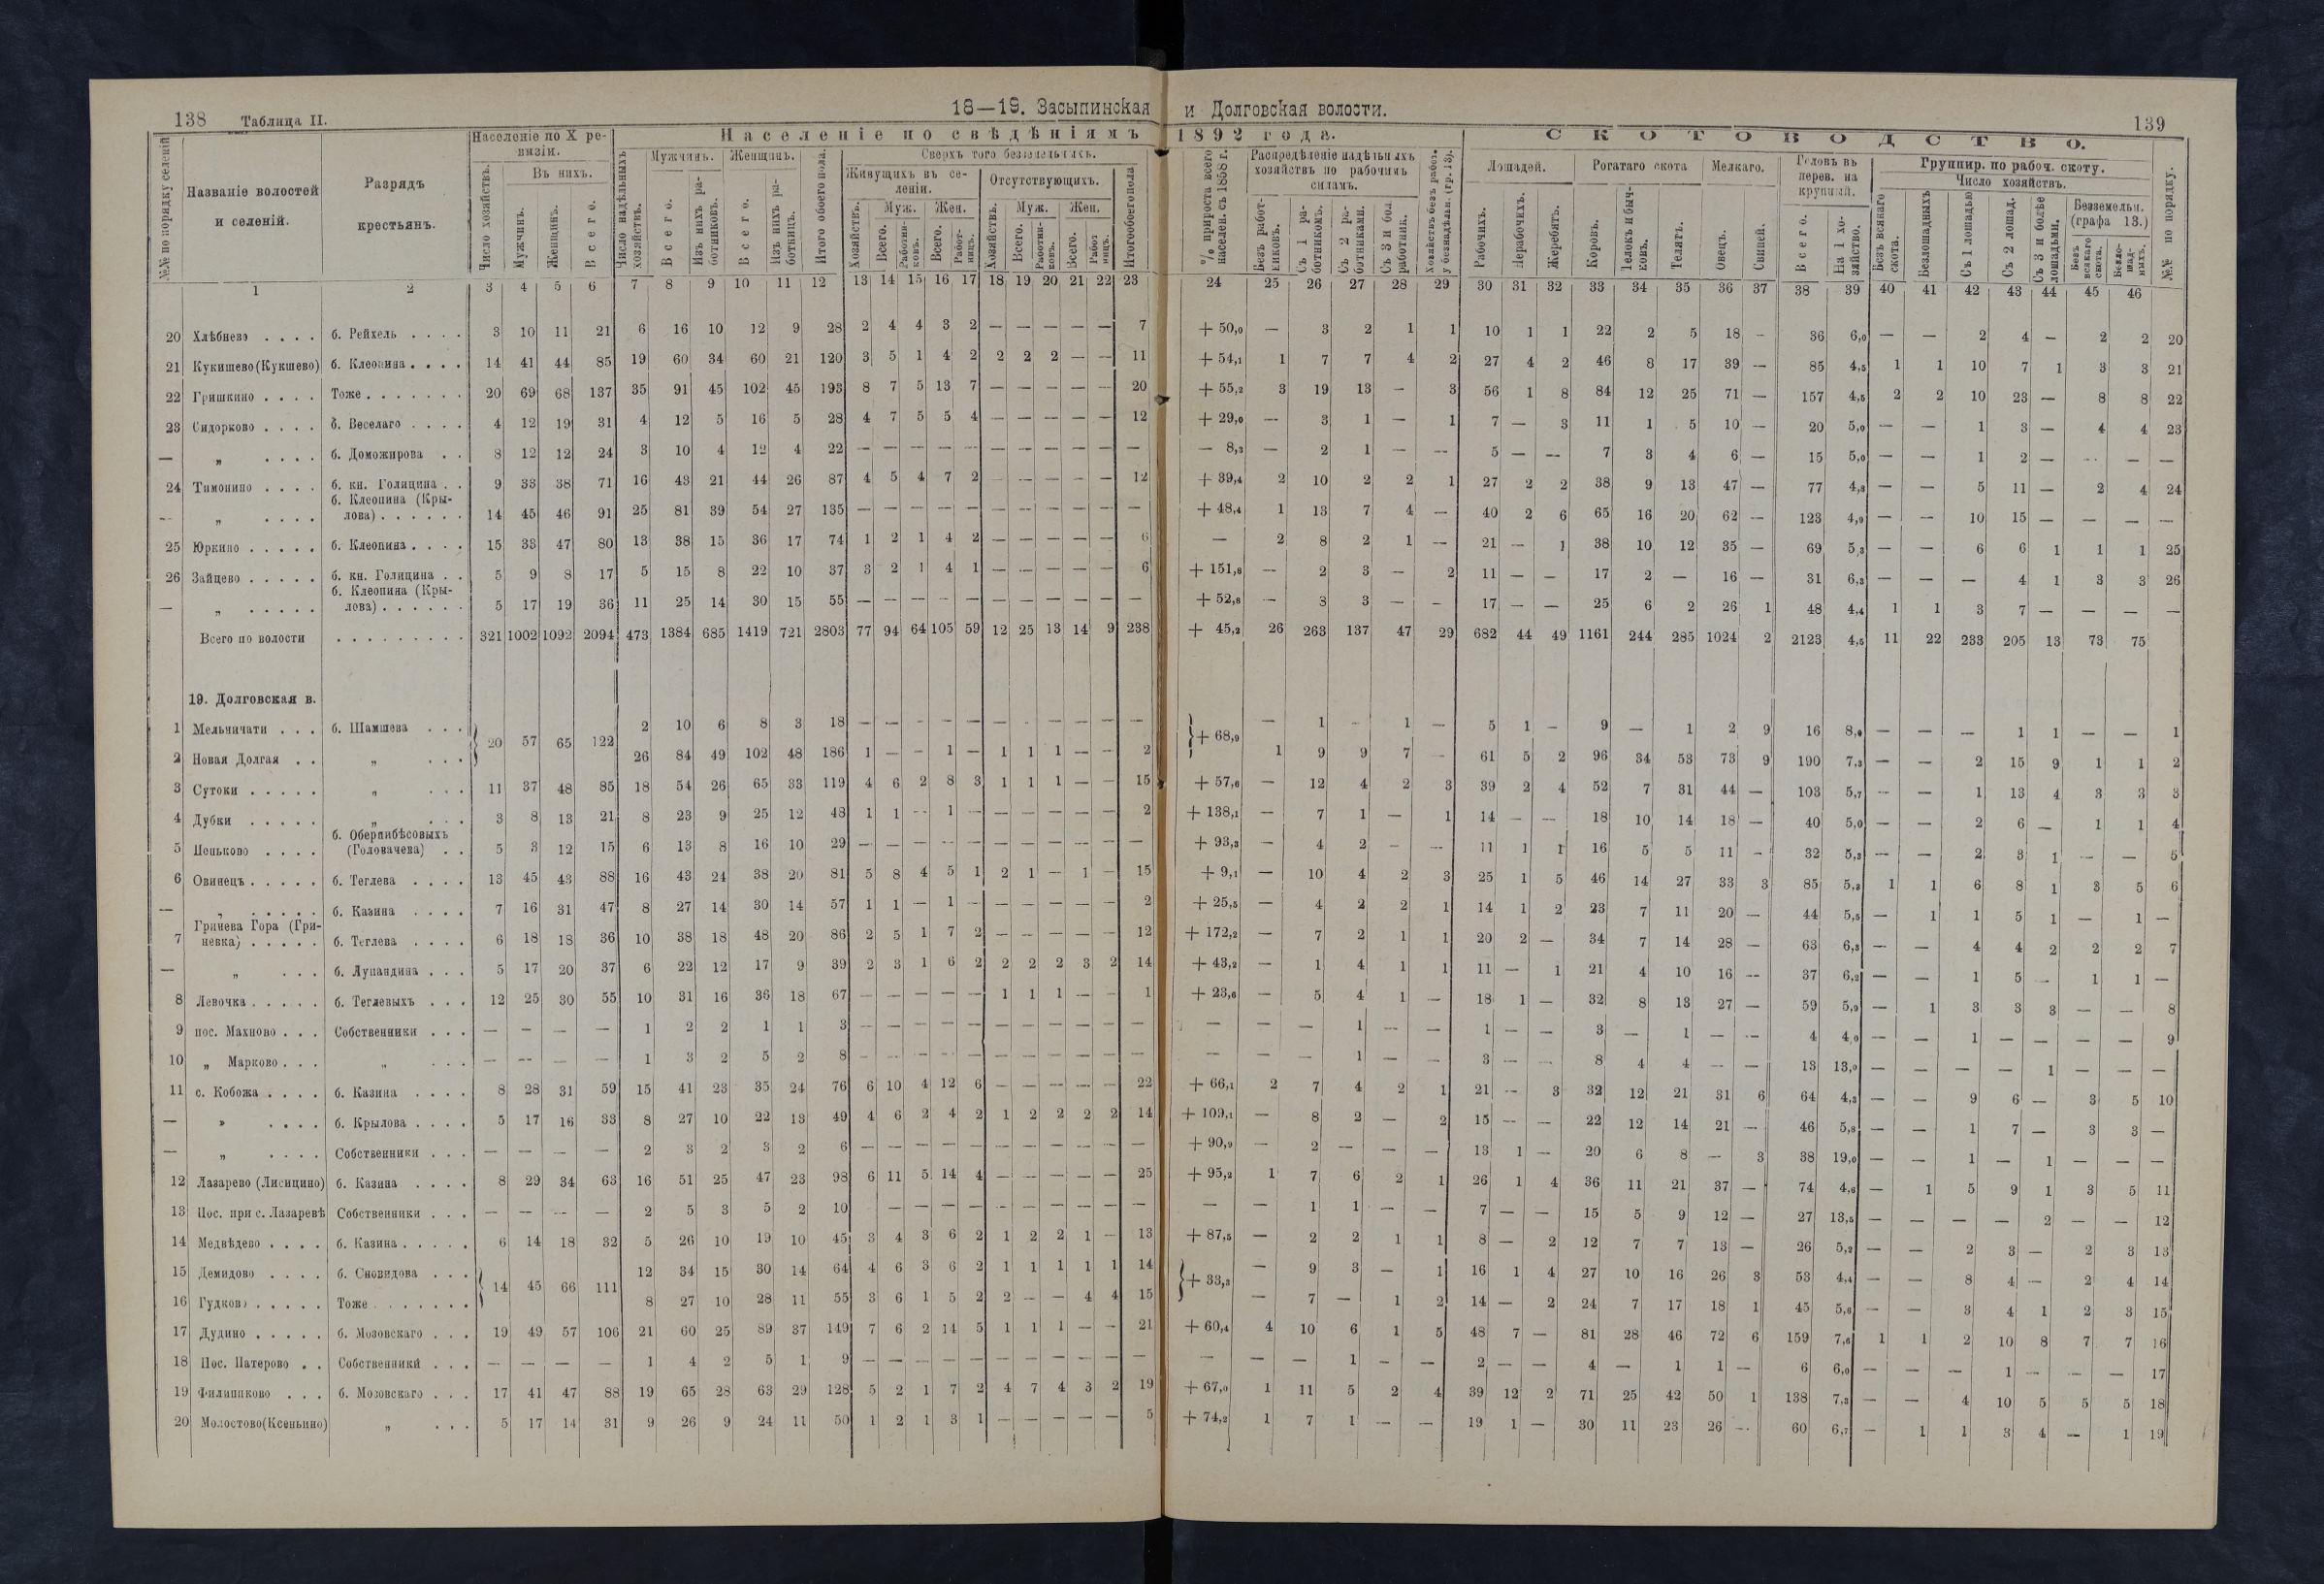 138 Таблица II.
18—19. Засыпинская и Долговская волости.
139
№№ по порядку селеній
Названіе волостей и селеній.
Разрядъ крестьянъ.
Населеніе по X ревизіи.
Число хозяйствъ.
Въ нихъ.
Мужчинъ.
Женщинъ.
Всего.
Населеніе по свѣдѣніямъ 1892 года.
Число надѣльныхъ хозяйствъ.
Мужчинъ.
Всего.
Изъ нихъ работниковъ.
Женщинъ.
Всего.
Изъ нихъ работницъ.
Итого обоего пола.
Сверхъ того безземельныхъ.
Живущихъ въ селеніи.
Хозяйствъ.
Муж.
Всего.
Работниковъ.
Жен.
Всего.
Работницъ.
Отсутствующихъ.
Хозяйствъ.
Муж.
Всего.
Работниковъ.
Жен.
Всего.
Работницъ.
Итого обоего пола
% прироста всего населен. съ 1858 г.
Распредѣленіе надѣльныхъ хозяйствъ по рабочимъ силамъ.
Безъ работниковъ.
Съ 1 работникомъ.
Съ 2 работниками.
Съ 3 и бол. работник.
Хозяйствъ безъ работ. у безнадѣльн. (гр. 13).
СКОТОВОДСТВО.
Лошадей.
Рабочихъ.
Нерабочихъ.
Жеребятъ.
Рогатаго скота
Коровъ.
Телокъ и бычковъ.
Телятъ.
Мелкаго.
Овецъ.
Свиней.
Головъ въ перев. на крупный.
Всего.
На 1 хозяйство.
Группир. по рабоч. скоту.
Число хозяйствъ.
Безъ всякаго скота.
Безлошадныхъ
Съ 1 лошадью
Съ 2 лошад.
Съ 3 и болѣе лошадьми.
Безземельн. (графа 13.)
Безъ всякаго скота.
Безлошадныхъ.
№№ по порядку.
1 2 3 4 5 6 7 8 9 10 11 12 13 14 15 16 17 18 19 20 21 22 23 24 25 26 27 28 29 30 31 32 33 34 35 36 37 38 39 40 41 42 43 44 45 46
20 Хлѣбнево . . . . б. Рейхель . . . . 3 10 11 21 6 16 10 12 9 28 2 4 4 3 2 — — — — — 7 + 50,0 — 3 2 1 1 10 1 1 22 2 5 18 — 36 6,0 — — 2 4 — 2 2 20
21 Кукишево (Кукшево) б. Клеопина . . . . 14 41 44 85 19 60 34 60 21 120 3 5 1 4 2 2 2 2 — — 11 + 54,1 1 7 7 4 2 27 4 2 46 8 17 39 — 85 4,5 1 1 10 7 1 3 3 21
22 Гришкино . . . . Тоже . . . . . . . 20 69 68 137 35 91 45 102 45 193 8 7 5 13 7 — — — — — 20 + 55,2 3 19 13 — 3 56 1 8 84 12 25 71 — 157 4,5 2 2 10 23 — 8 8 22
23 Сидорково . . . . б. Веселаго . . . . 4 12 19 31 4 12 5 16 5 28 4 7 5 5 4 — — — — — 12 + 29,0 — 3 1 — 1 7 — 3 11 1 5 10 — 20 5,0 — — 1 3 — 4 4 23
— „ . . . . б. Доможирова . . 8 12 12 24 3 10 4 12 4 22 — — — — — — — — — — — — 8,3 — 2 1 — — 5 — — 7 3 4 6 — 15 5,0 — — 1 2 — — — —
24 Тимонино . . . . б. кн. Голицина . . 9 33 38 71 16 43 21 44 26 87 4 5 4 7 2 — — — — — 12 + 39,4 2 10 2 2 1 27 2 2 38 9 13 47 — 77 4,8 — — 5 11 — 2 4 24
— „ . . . . б. Клеопина (Крылова) . . . . . . 14 45 46 91 25 81 39 54 27 135 — — — — — — — — — — — + 48,4 1 13 7 4 — 40 2 6 65 16 20 62 — 123 4,9 — — 10 15 — — — —
25 Юркино . . . . . б. Клеопина . . . . 15 33 47 80 13 38 15 36 17 74 1 2 1 4 2 — — — — — 6 — 2 8 2 1 — 21 — 1 38 10 12 35 — 69 5,3 — — 6 6 1 1 1 25
26 Зайцево . . . . . б. кн. Голицина . . 5 9 8 17 5 15 8 22 10 37 3 2 1 4 1 — — — — — 6 + 151,8 — 2 3 — 2 11 — — 17 2 — 16 — 31 6,3 — — — 4 1 3 3 26
— „ . . . . . б. Клеопина (Крылова) . . . . . . 5 17 19 36 11 25 14 30 15 55 — — — — — — — — — — — + 52,8 — 8 3 — — 17 — — 25 6 2 26 1 48 4,4 1 1 3 7 — — — —
Всего по волости . . . . . . . . . . 321 1002 1092 2094 473 1384 685 1419 721 2803 77 94 64 105 59 12 25 13 14 9 238 + 45,2 26 263 137 47 29 682 44 49 1161 244 285 1024 2 2123 4,5 11 22 233 205 13 73 75
19. Долговская в.
1 Мельничати . . . б. Шамшева . . . 20 57 65 122 2 10 6 8 3 18 — — — — — — — — — — — + 68,9 — 1 — 1 — 5 1 — 9 — 1 2 9 16 8,0 — — — 1 1 — — 1
2 Новая Долгая . . „ . . . 26 84 49 102 48 186 1 — — 1 — 1 1 1 — — 2 1 9 9 7 — 61 5 2 96 34 53 73 9 190 7,3 — — 2 15 9 1 1 2
3 Сутоки . . . . . „ . . . 11 37 48 85 18 54 26 65 33 119 4 6 2 8 3 1 1 1 — — 15 + 57,6 — 12 4 2 3 39 2 4 52 7 31 44 — 103 5,7 — — 1 13 4 3 3 3
4 Дубки . . . . . „ . . . 3 8 13 21 8 23 9 25 12 48 1 1 — 1 — — — — — — 2 + 138,1 — 7 1 — 1 14 — — 18 10 14 18 — 40 5,0 — — 2 6 — 1 1 4
5 Пеньково . . . . б. Оберпибѣсовыхъ (Головачева) . . 5 3 12 15 6 13 8 16 10 29 — — — — — — — — — — — + 93,3 — 4 2 — — 11 1 1 16 5 5 11 — 32 5,3 — — 2 3 1 — — 5
6 Овинецъ . . . . . б. Теглева . . . . 13 45 43 88 16 43 24 38 20 81 5 8 4 5 1 2 1 — 1 — 15 + 9,1 — 10 4 2 3 25 1 5 46 14 27 33 3 85 5,3 1 1 6 8 1 3 5 6
— „ . . . . . б. Казина . . . . 7 16 31 47 8 27 14 30 14 57 1 1 — 1 — — — — — — 2 + 25,5 — 4 2 2 1 14 1 2 23 7 11 20 — 44 5,5 — 1 1 5 1 — 1 —
7 Гринева Гора (Гриневка) . . . . . б. Теглева . . . . 6 18 18 36 10 38 18 48 20 86 2 5 1 7 2 — — — — — 12 + 172,2 — 7 2 1 1 20 2 — 34 7 14 28 — 63 6,3 — — 4 4 2 2 2 7
— „ . . . б. Лупандина . . . 5 17 20 37 6 22 12 17 9 39 2 3 1 6 2 2 2 2 3 2 14 + 43,2 — 1 4 1 1 11 — 1 21 4 10 16 — 37 6,2 — — 1 5 — 1 1 —
8 Левочка . . . . . б. Теглевыхъ . . . 12 25 30 55 10 31 16 36 18 67 — — — — — 1 1 1 — — 1 + 23,6 — 5 4 1 — 18 1 — 32 8 13 27 — 59 5,9 — 1 3 3 3 — — 8
9 пос. Махново . . . Собственники . . . — — — — 1 2 2 1 1 3 — — — — — — — — — — — — — — 1 — — 1 — — 3 — 1 — — 4 4,0 — — 1 — — — — 9
10 „ Марково . . . „ . . . — — — — 1 3 2 5 2 8 — — — — — — — — — — — — — — 1 — — 3 — — 8 4 4 — — 13 13,0 — — — — 1 — — —
11 с. Кобожа . . . . б. Казина . . . . 8 28 31 59 15 41 23 35 24 76 6 10 4 12 6 — — — — — 22 + 66,1 2 7 4 2 1 21 — 3 32 12 21 31 6 64 4,3 — — 9 6 — 3 5 10
— » . . . . б. Крылова . . . . 5 17 16 33 8 27 10 22 13 49 4 6 2 4 2 1 2 2 2 2 14 + 109,1 — 8 2 — 2 15 — — 22 12 14 21 — 46 5,8 — — 1 7 — 3 3 —
— „ . . . . Собственники . . . — — — — 2 3 2 3 2 6 — — — — — — — — — — — + 90,9 — 2 — — — 13 1 — 20 6 8 — 3 38 19,0 — — 1 — 1 — — —
12 Лазарево (Лисицино) б. Казина . . . . 8 29 34 63 16 51 25 47 23 98 6 11 5 14 4 — — — — — 25 + 95,2 1 7 6 2 1 26 1 4 36 11 21 37 — 74 4,6 — 1 5 9 1 3 5 11
13 Пос. при с. Лазаревѣ Собственники . . . — — — — 2 5 3 5 2 10 — — — — — — — — — — — — 1 1 — — 7 — — 15 5 9 12 — 27 13,5 — — — — 2 — — 12
14 Медвѣдево . . . . б. Казина . . . . . 6 14 18 32 5 26 10 19 10 45 3 4 3 6 2 1 2 2 1 — 13 + 87,5 — 2 2 1 1 8 — 2 12 7 7 13 — 26 5,2 — — 2 3 — 2 3 13
15 Демидово . . . . б. Сновидова . . . 14 45 66 111 12 34 15 30 14 64 4 6 3 6 2 1 1 1 1 1 14 + 33,3 — 9 3 — 1 16 1 4 27 10 16 26 3 53 4,4 — — 8 4 — 2 4 14
16 Гудково . . . . . Тоже . . . . . . . 8 27 10 28 11 55 3 6 1 5 2 2 — — 4 4 15 — 7 — 1 2 14 — 2 24 7 17 18 1 45 5,6 — — 3 4 1 2 3 15
17 Дудино . . . . . б. Мозовскаго . . . 19 49 57 106 21 60 25 89 37 149 7 6 2 14 5 1 1 1 — — 21 + 60,4 4 10 6 1 5 48 7 — 81 28 46 72 6 159 7,6 1 1 2 10 8 7 7 16
18 Пос. Патерово . . Собственники . . . — — — — 1 4 2 5 1 9 — — — — — — — — — — — — — — 1 — — 2 — — 4 — 1 1 — 6 6,0 — — — 1 — — — 17
19 Филипково . . . б. Мозовскаго . . . 17 41 47 88 19 65 28 63 29 128 5 2 1 7 2 4 7 4 3 2 19 + 67,0 1 11 5 2 4 39 12 2 71 25 42 50 1 138 7,3 — — 4 10 5 5 5 18
20 Молостово (Ксеньино) „ . . . 5 17 14 31 9 26 9 24 11 50 1 2 1 3 1 — — — — — 5 + 74,2 1 7 1 — — 19 1 — 30 11 23 26 — 60 6,7 — 1 1 3 4 — 1 19